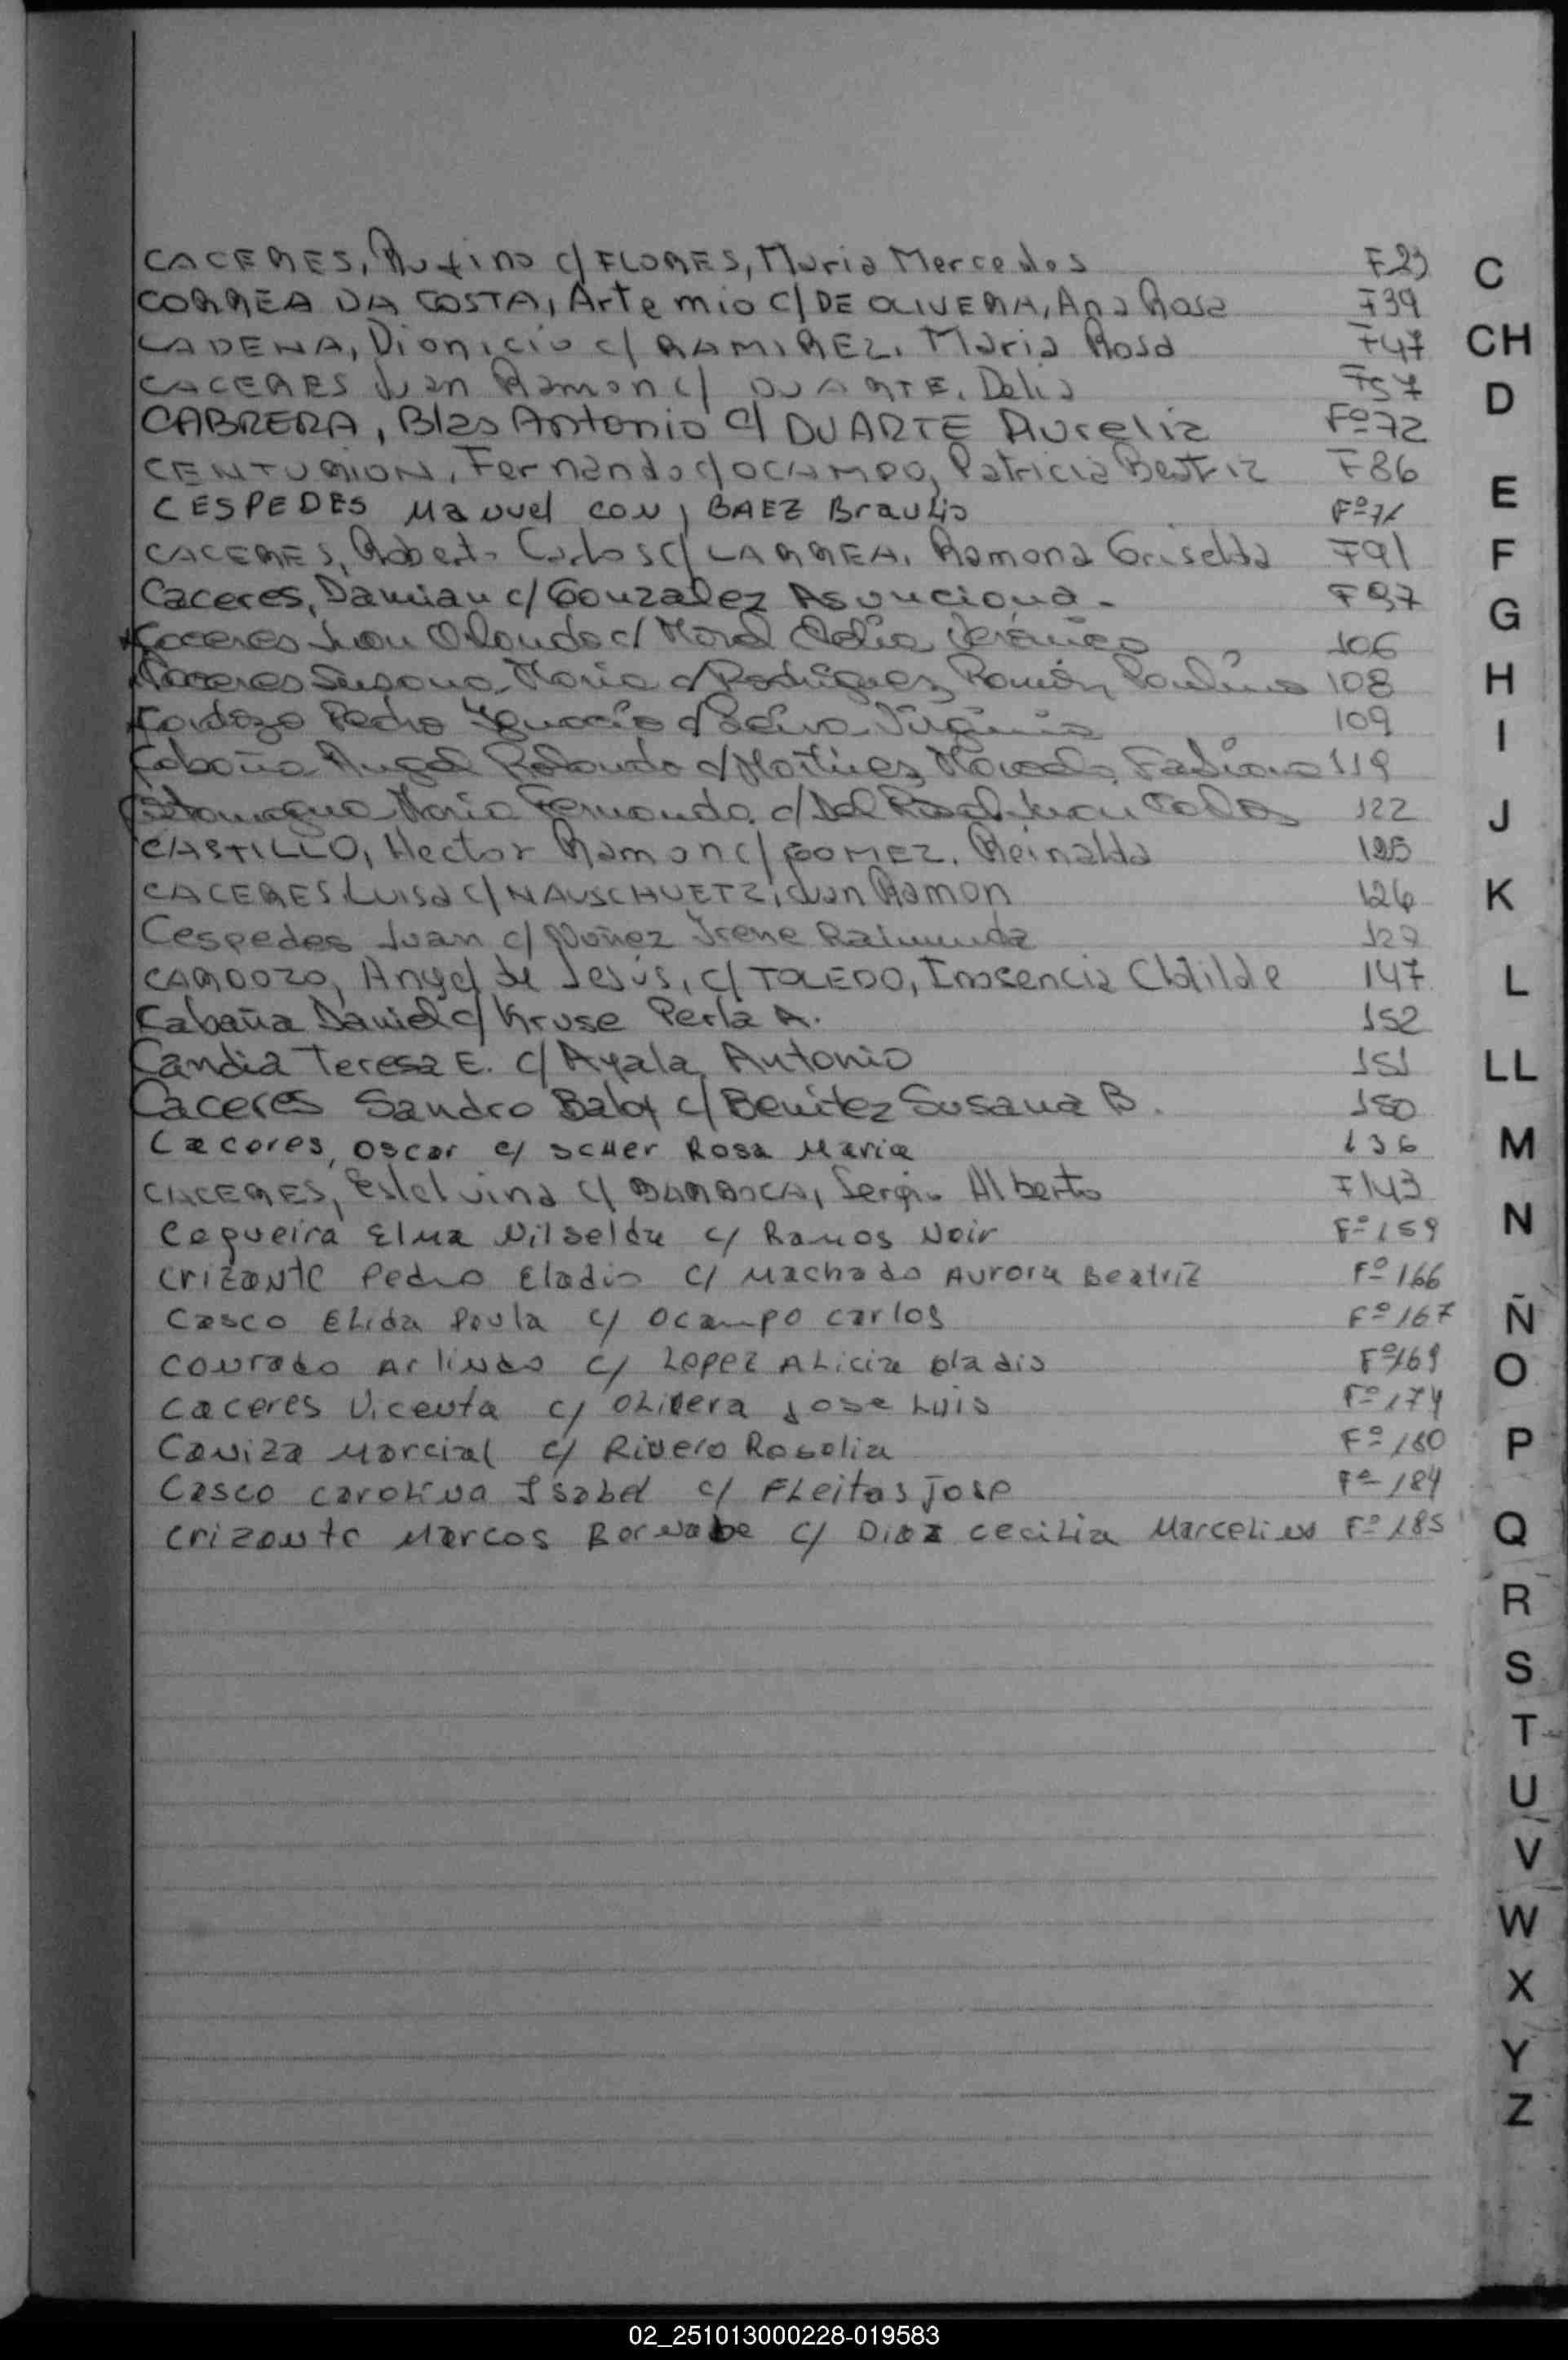 CACERES, Rufino c/ FLORES, Maria Mercedes F23
CORREA DA COSTA, Artemio C/ DE OLIVERA, Ana Rosa F39
CADENA, Dionicio c/ RAMIREZ, Maria Rosa F47
CACERES Juan Ramon c/ DUARTE, Delia F57
CABRERA, Blas Antonio c/ DUARTE Aurelia Fº 72
CENTURION, Fernando c/ OCAMPO, Patricia Beatriz F86
CESPEDES Manuel con, BAEZ Braulia Fº 71
CACERES, Roberto Carlos c/ LARREA, Ramona Griselda F91
Caceres, Damian c/ Gonzalez Asunciona - F 97
Caceres Juan Orlando c/ Morel Celia Verónica 106
Caceres Susana Maria c/ Rodriguez Ramón Paulino 108
Cardozo Pedro Ignacio c/ Silva Virginia 109
Cabaña Angel Rolando c/ Martinez Marcela Fabiana 119
Maria Fernanda c/ Del Juan Carlos 122
CASTILLO, Hector Ramon c/ GOMEZ, Reinalda 125
CACERES Luisa c/ NAUSCHUETZ, Juan Ramon 126
Cespedes Juan c/ Nuñez Irene Raimunda 127
CARDOZO, Angel de Jesús, c/ TOLEDO, Inosencia Clotilde 147
Cabaña Daniel c/ Kruse Perla A. 152
Candia Teresa E. c/ Ayala Antonio 151
Caceres Sandro Baby c/ Benitez Susana B. 150
Caceres, Oscar c/ scher Rosa Maria 136
CACERES, Estelvina c/ BARBOSA, Sergio Alberto F143
Cequeira Elma Nilselda c/ Ramos Noir Fº 159
Crizonte Pedro Eladio c/ Machado Aurora Beatriz Fº 166
Casco Elida Paula c/ Ocampo Carlos Fº 167
Conrado Arlindo c/ Lopez Alicia Gladis Fº 169
Caceres Vicenta c/ Olivera Jose Luis Fº 174
Caniza Marcial c/ Rivero Rosalia Fº 180
Casco Carolina Isabel c/ Fleitas Jose Fº 184
Crizonte Marcos Bernabe c/ Diaz Cecilia Marcelina Fº 185
C
CH
D
E
F
G
H
I
J
K
L
LL
M
N
Ñ
O
P
Q
R
S
T
U
V
W
X
Y
Z
02_251013000228-019583